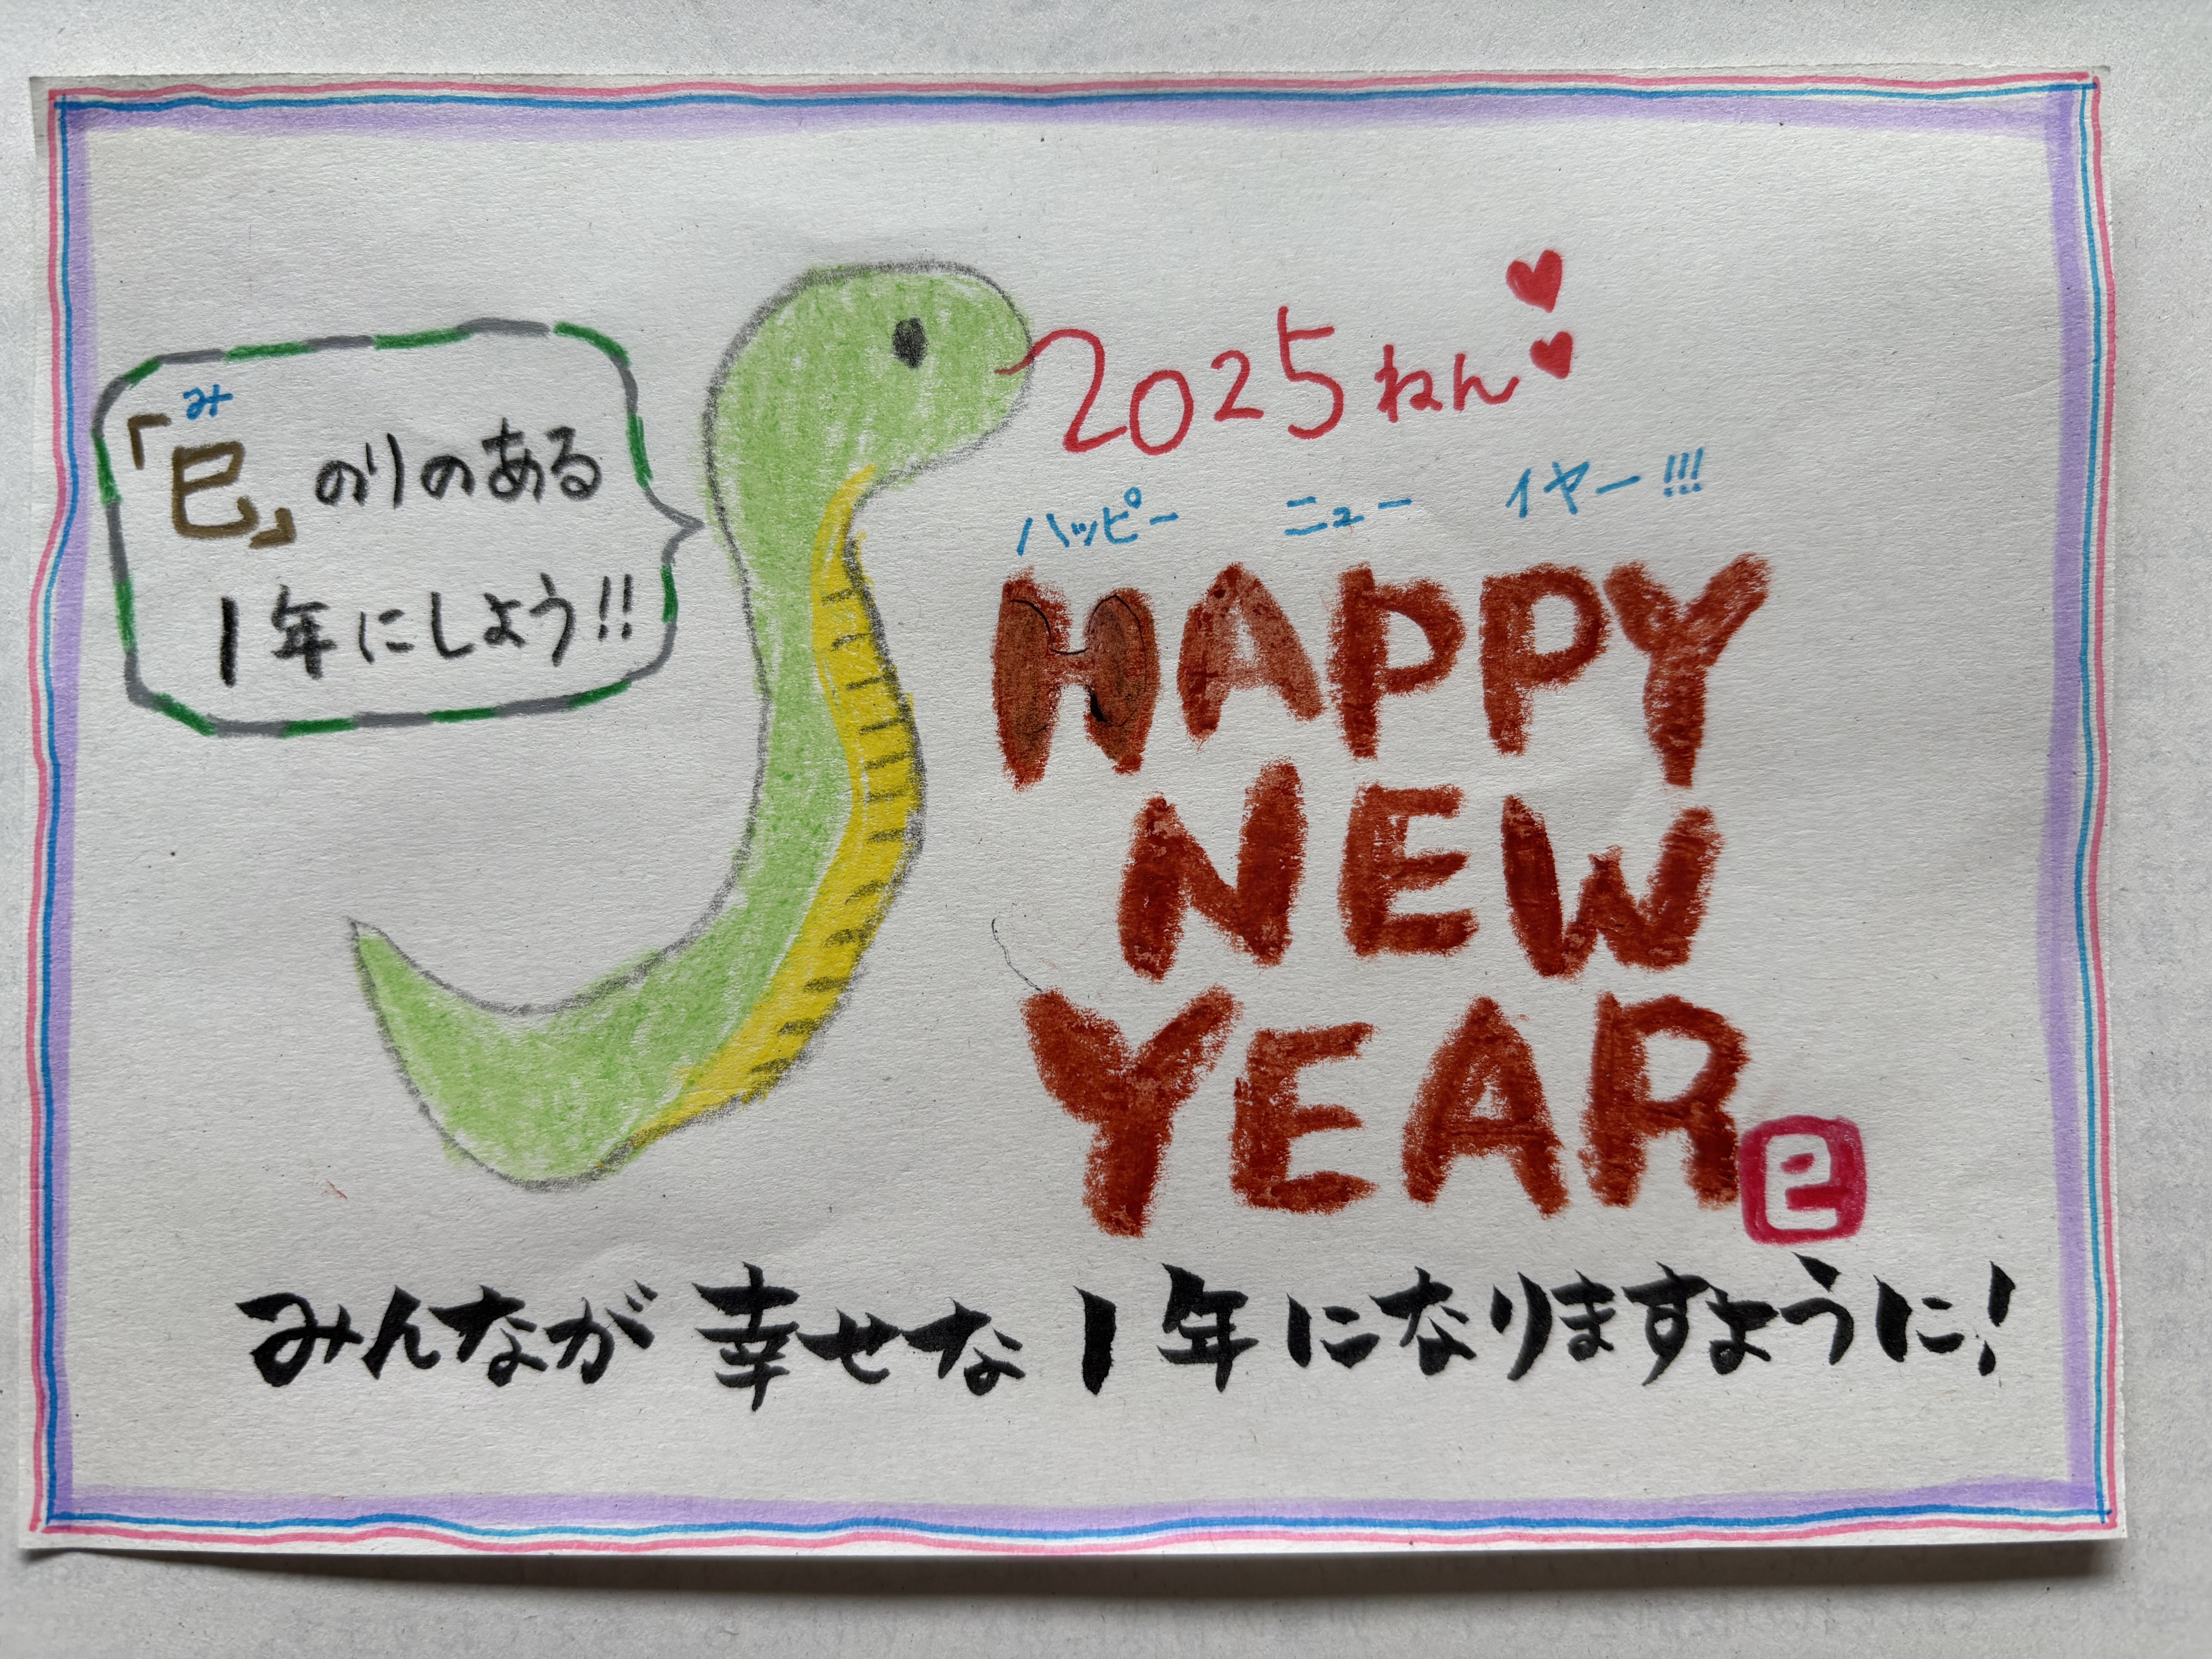 2025ねん
み
「巳」のりのある
1年にしよう!!
ハッピー ニュー イヤー!!!
HAPPY
NEW
YEAR
巳
みんなが幸せな1年になりますように!